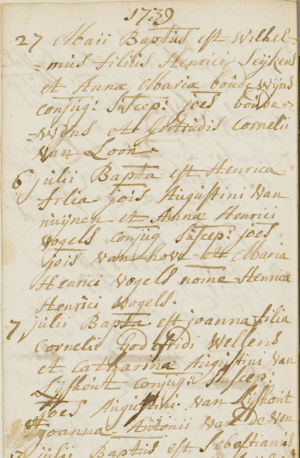 1739
27 Maii Baptus est Wilhel-
-mus filius Henrici Seijkens
et Annæ Maria boudewijns
conjug: Suscep: joes boude-
-wijns et Gertrudis Cornelii
van Loon
6 julii Bapta est Henrica
filia jois Augustini van
nuijnen et Anna Henrici
vogels conjug Suscep: joes
jois van hove et Maria
Henrici vogels noine Henrica
Henrici vogels.
7 julii Bapta est joanna filia
Cornelii Godefridi Wellens
et catharina Augustini van
Lijshout conjug: Suscep:
joes Augustini van Lijshout
et joanna Antonii van de ven
julii Baptus est Sebestianus